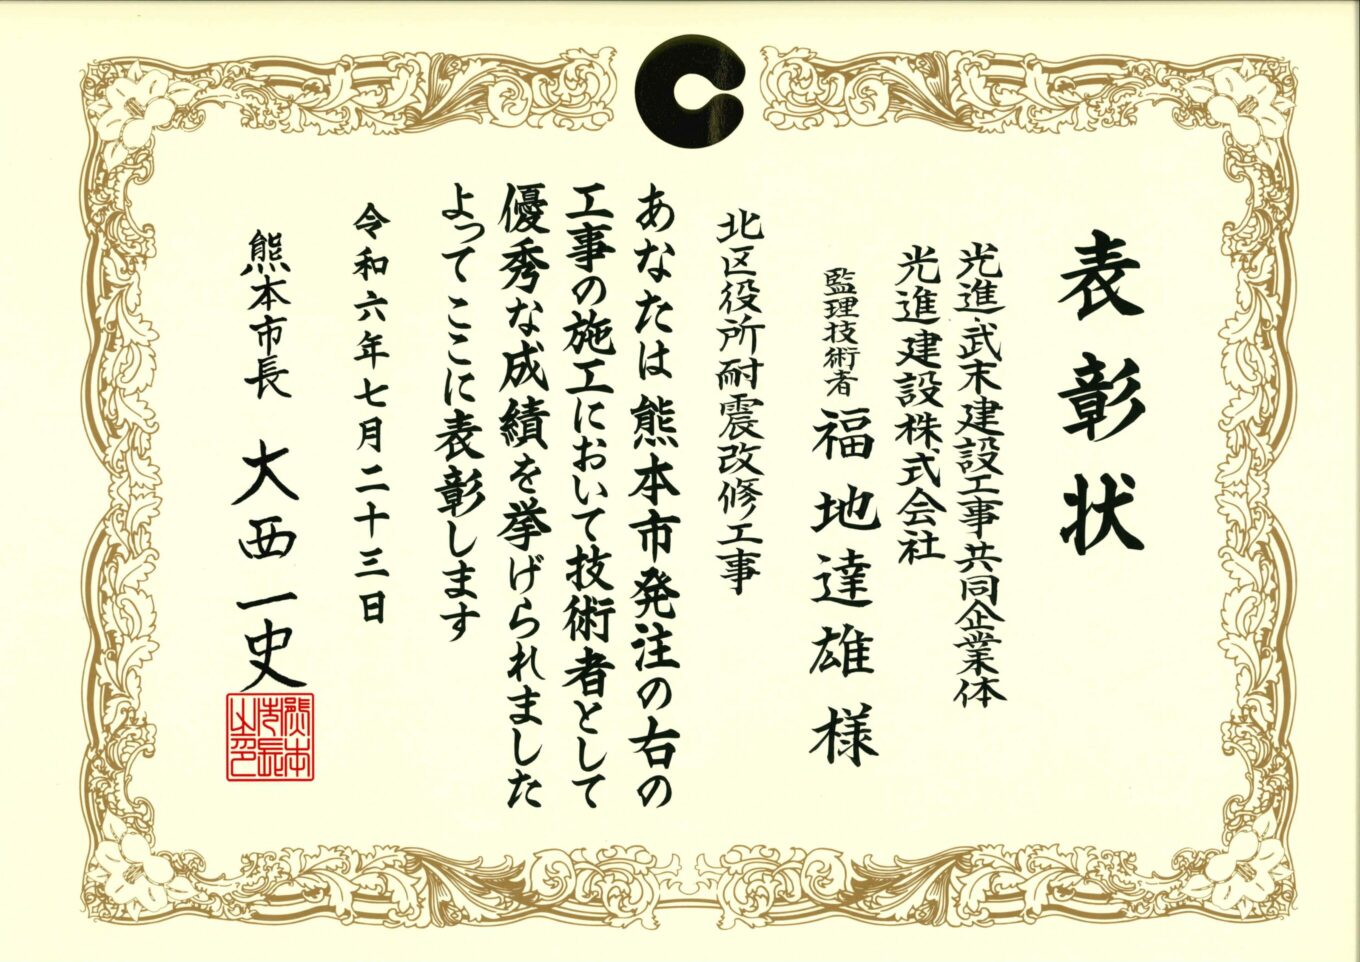 表彰状
光進・武末建設工事共同企業体
光進建設株式会社
監理技術者 福地達雄様
北区役所耐震改修工事
あなたは熊本市発注の右の
工事の施工において技術者として
優秀な成績を挙げられました
よってここに表彰します
令和六年七月二十三日
熊本市長 大西一史
熊本
市長
之印